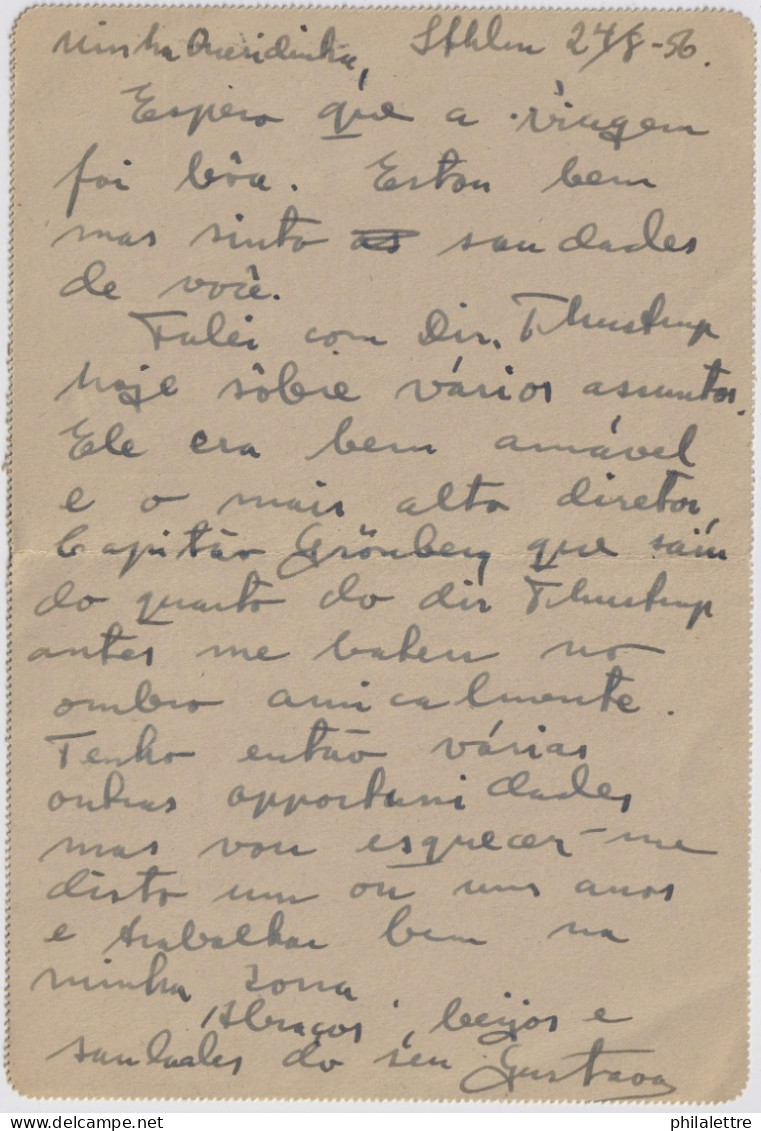 Minha Queridinha, Sthlm 24/8-56.
Espero que a viagem
foi bôa. Estou bem
mas sinto as saudades
de você.
Falei com Dir. Thustrup
hoje sôbre vários assuntos.
Ele era bem amável
e o mais alto diretor,
Capitão Grönberg que saiu
do quarto do dir Thustrup
antes me bateu no
ombro amicalmente.
Tenho então várias
outras opportunidades
mas vou esquecer-me
disto um ou uns anos
e trabalhar bem na
minha zona.
Abraços, beijos e
saudades do seu Gustavo
philalettre